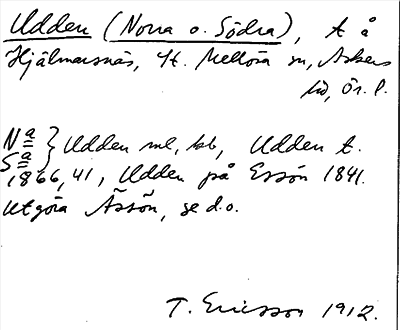 Udden (Norra o. Södra), t å
Hjälmarsnäs, St. Mellösa sn, Askers
hd, Ör. l.
Na
Sa } Udden ml, kb, Udden t.
1866, 41, Udden på Essön 1841.
Utgöra Ässön, se d.o.
T. Ericsson 1912.